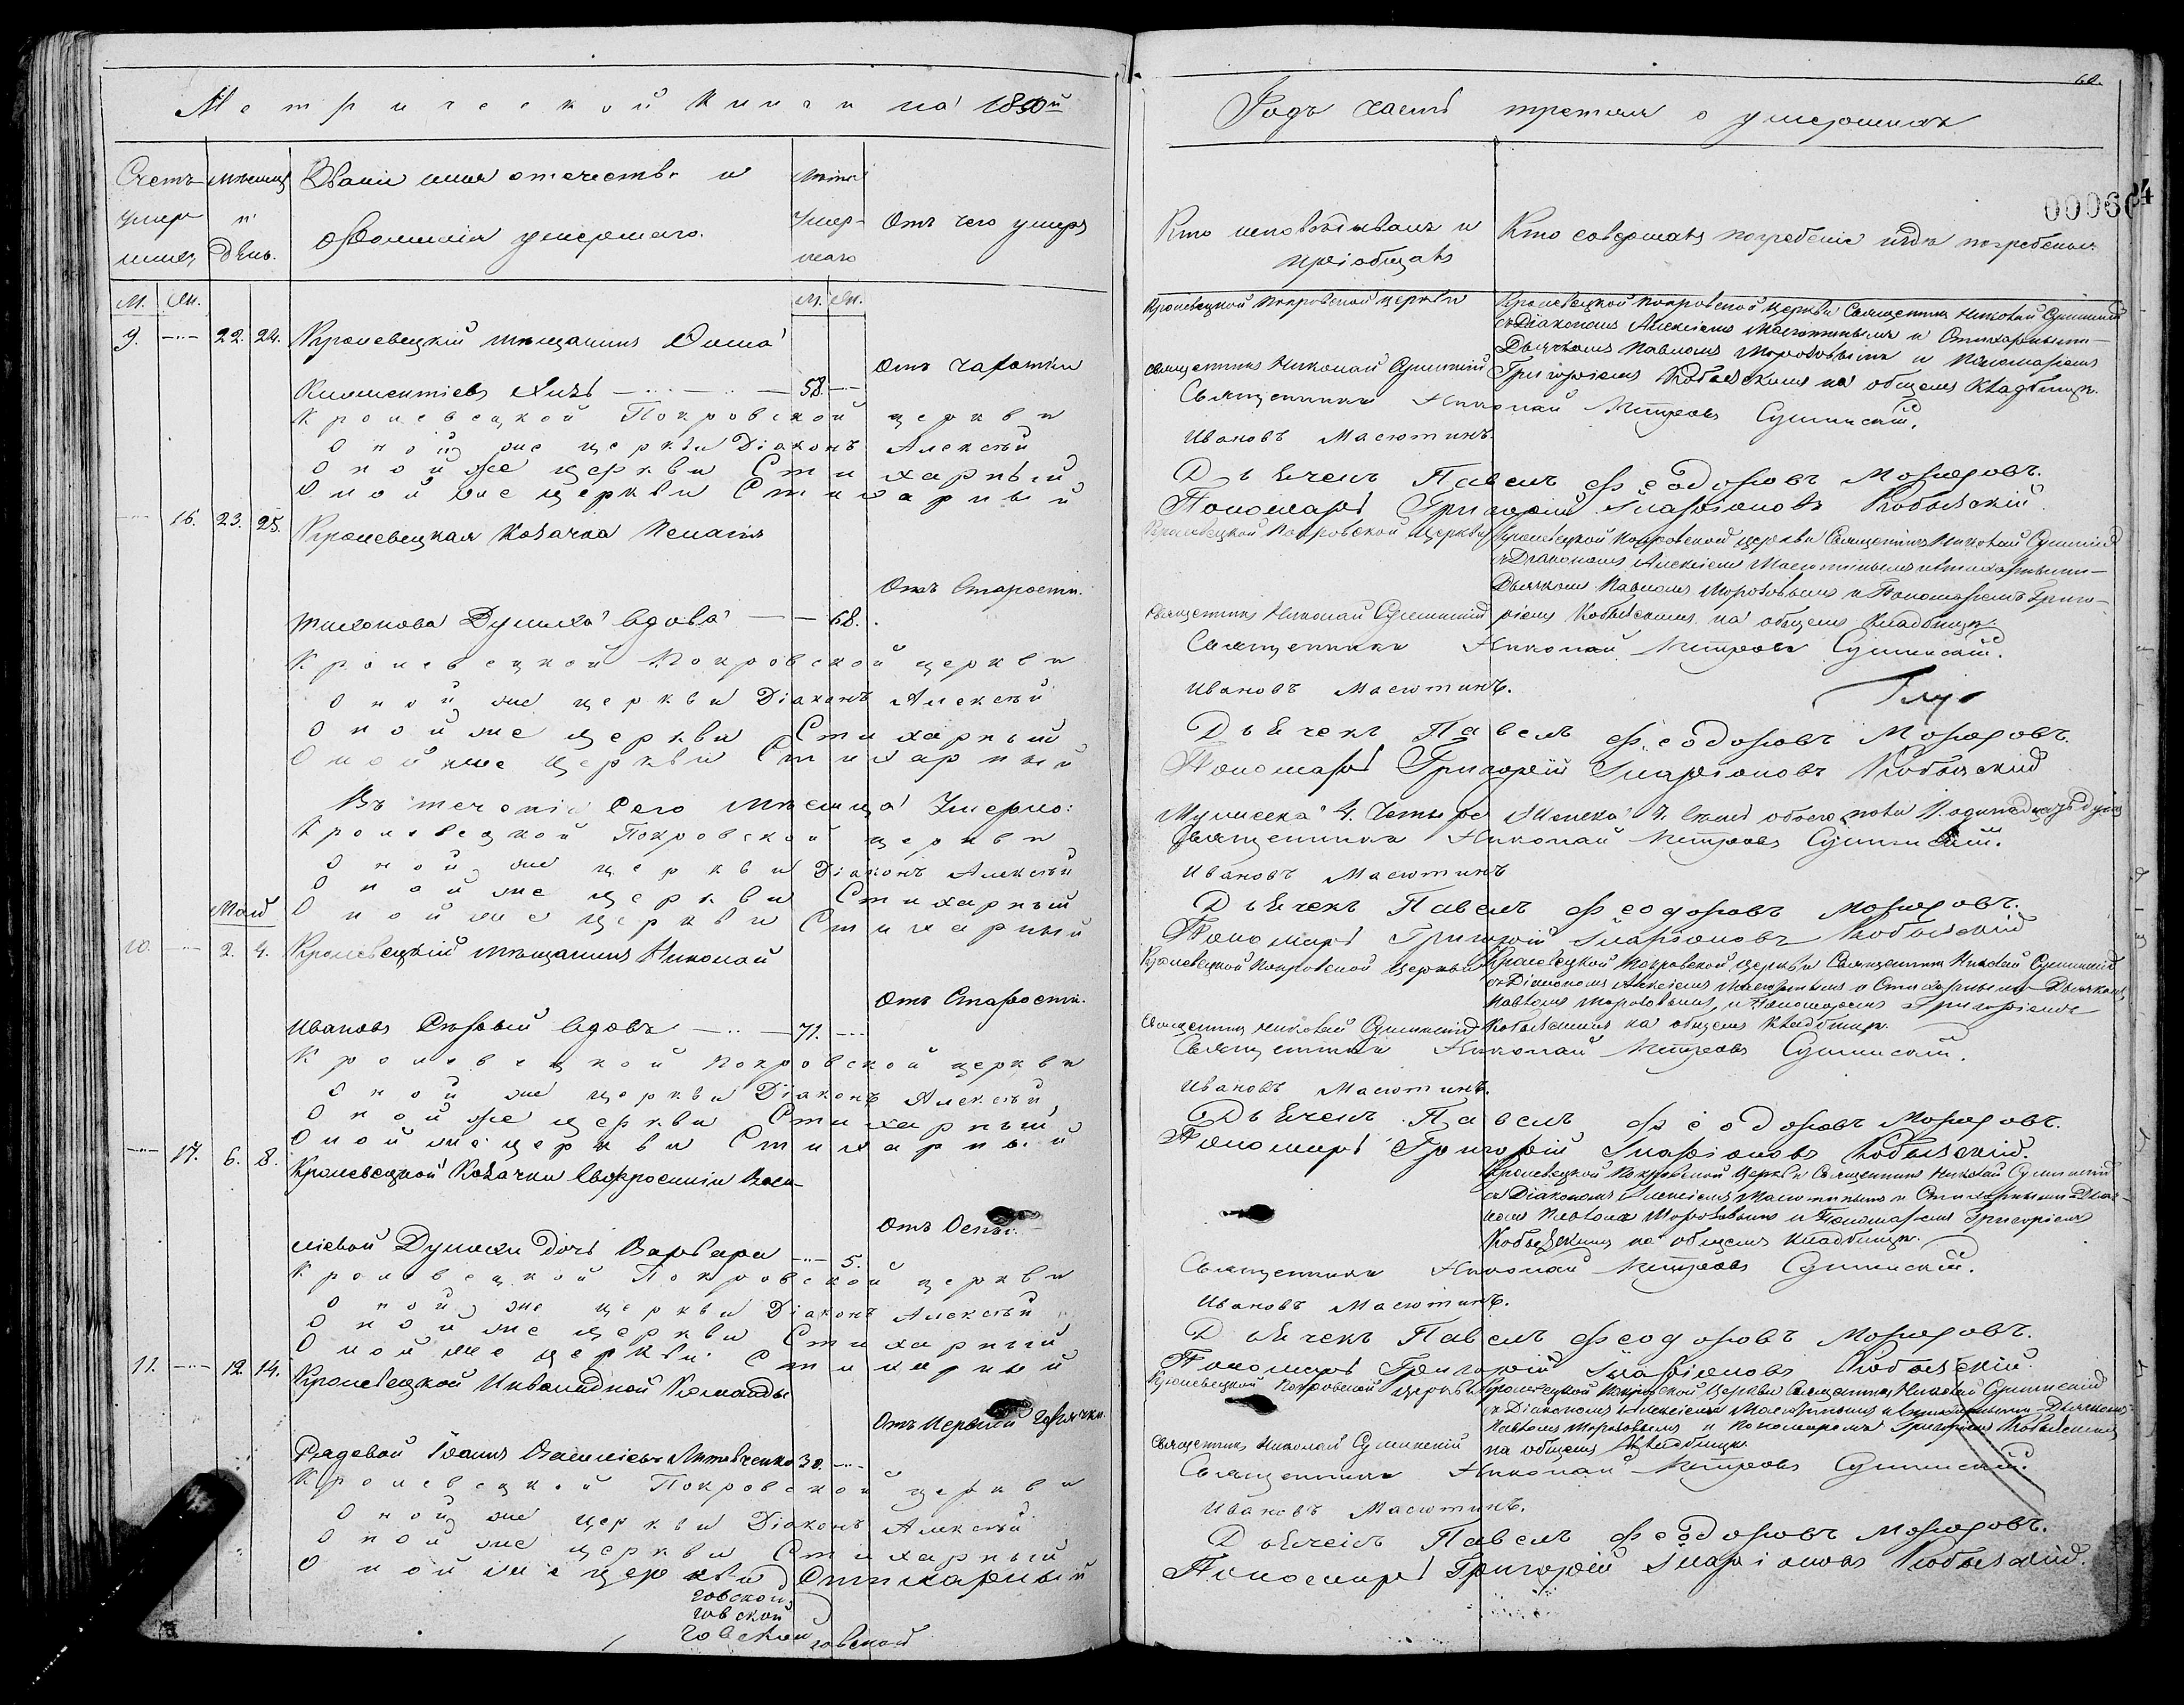 Метрической Книги на 1850й
Счетъ умер-шихъ
Мѣсяцъ и День.
Званіе имя отечество и фамилія умершаго.
Лѣта Умер-шаго
Отъ чего умеръ
М. Жп. М. Жп.
9. — 22. 24. Кролевецкій мѣщанинъ
Климентіевъ — 58 —
Отъ Чахотки
Кролевецкой Покровской церкви
Оной же церкви Діаконъ Алексѣй
Оной же церкви Стихарный
Оной же церкви Стихарный
— 16. 23. 25. Кролевецкая Козачка Пелагія
Тихонова вдова — 68.
Отъ Старости.
Кролевецкой Покровской церкви
Оной же церкви Діаконъ Алексѣй
Оной же церкви Стихарный
Оной же церкви Стихарный
Въ теченіи Сего Мѣсяца Умерло:
Кролевецкой Покровской церкви
Оной же церкви Діаконъ Алексѣй
Оной же церкви Стихарный
Май Оной же церкви Стихарный
10. — 2. 4. Кролевецкій мѣщанинъ Николай
Отъ Старости.
Ивановъ вдовъ — 71. —
Кролевецкой Покровской церкви
Оной же церкви Діаконъ Алексѣй
Оной же церкви Стихарный
Оной же церкви Стихарный
— 17. 6. 8. Кролевецкой Козачки Евфросиніи Васи-
Отъ Оспы.
ліевой дочь Варвара — 5.
Кролевецкой Покровской церкви
Оной же церкви Діаконъ Алексѣй
Оной же церкви Стихарный
Оной же церкви Стихарный
11. — 12. 14. Кролевецкой Инвалидной Команды
Отъ Нервной Горячки.
Рядовой Іоаннъ Василіевъ Литовченко 30. —
Кролевецкой Покровской церкви
Оной же церкви Діаконъ Алексѣй
Оной же церкви Стихарный
Оной же церкви Стихарный
говской
говской
говской говской
60.
Годъ часть третія о умершихъ
00060 64
Кто исповѣдывалъ и пріобщалъ
Кто совершалъ погребеніе и гдѣ погребены
Кролевецкой Покровской церкви
Священникъ Николай Сушинскій
Кролевецкой Покровской Церкви Священникъ Николай Сушинскій
съ Діакономъ Алексіемъ Масютинымъ и Стихарными —
Дьячкомъ Павломъ Морозовымъ и Пономаремъ
Григоріемъ на общемъ Кладбищѣ.
Священникъ Николай Петровъ Сушинскій.
Ивановъ Масютинъ.
Дьячекъ Павелъ Феодоровъ Морозовъ.
Пономарь Григорій Иларіоновъ
Кролевецкой Покровской Церкви
Священникъ Николай Сушинскій
Кролевецкой Покровской церкви Священникъ Николай Сушинскій
съ Діакономъ Алексіемъ Масютинымъ и Стихарными —
Дьячкомъ Павломъ Морозовымъ и Пономаремъ Григо-
ріемъ на общемъ Кладбищѣ.
Священникъ Николай Петровъ Сушинскій.
Ивановъ Масютинъ.
Дьячекъ Павелъ Феодоровъ Морозовъ.
Пономарь Григорій Иларіоновъ
Мужеска 4. Четыре Женска 7. Семь обоего пола 11. одинадцать душъ
Священникъ Николай Петровъ Сушинскій.
Ивановъ Масютинъ
Дьячекъ Павелъ Феодоровъ Морозовъ.
Пономарь Григорій Иларіоновъ
Кролевецкой Покровской Церкви
Священникъ Николай Сушинскій
Кролевецкой Покровской церкви Священникъ Николай Сушинскій
съ Діакономъ Алексіемъ Масютинымъ и Стихарными — Дьячкомъ
Павломъ Морозовымъ и Пономаремъ Григоріемъ
на общемъ Кладбищѣ.
Священникъ Николай Петровъ Сушинскій.
Ивановъ Масютинъ.
Дьячекъ Павелъ Феодоровъ Морозовъ.
Пономарь Григорій Иларіоновъ
Кролевецкой Покровской Церкви Священникъ Николай Сушинскій
съ Діакономъ Алексіемъ Масютинымъ и Стихарными Дьяч-
комъ Павломъ Морозовымъ и Пономаремъ Григоріемъ
на общемъ Кладбищѣ.
Священникъ Николай Петровъ Сушинскій.
Ивановъ Масютинъ.
Дьячекъ Павелъ Феодоровъ Морозовъ.
Пономарь Григорій Иларіоновъ
Кролевецкой Покровской церкви
Священникъ Николай Сушинскій
Кролевецкой Покровской Церкви Священникъ Николай Сушинскій
съ Діакономъ Алексіемъ Масютинымъ и Стихарными — Дьячкомъ
Павломъ Морозовымъ и Пономаремъ Григоріемъ
на общемъ Кладбищѣ
Священникъ Николай Петровъ Сушинскій.
Ивановъ Масютинъ.
Дьячекъ Павелъ Феодоровъ Морозовъ.
Пономарь Григорій Иларіоновъ